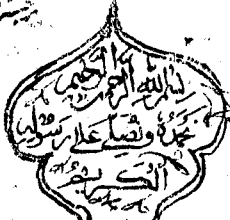 بسم الله الرحمن الرحيم
نحمده ونصلي علی رسوله
الكريم